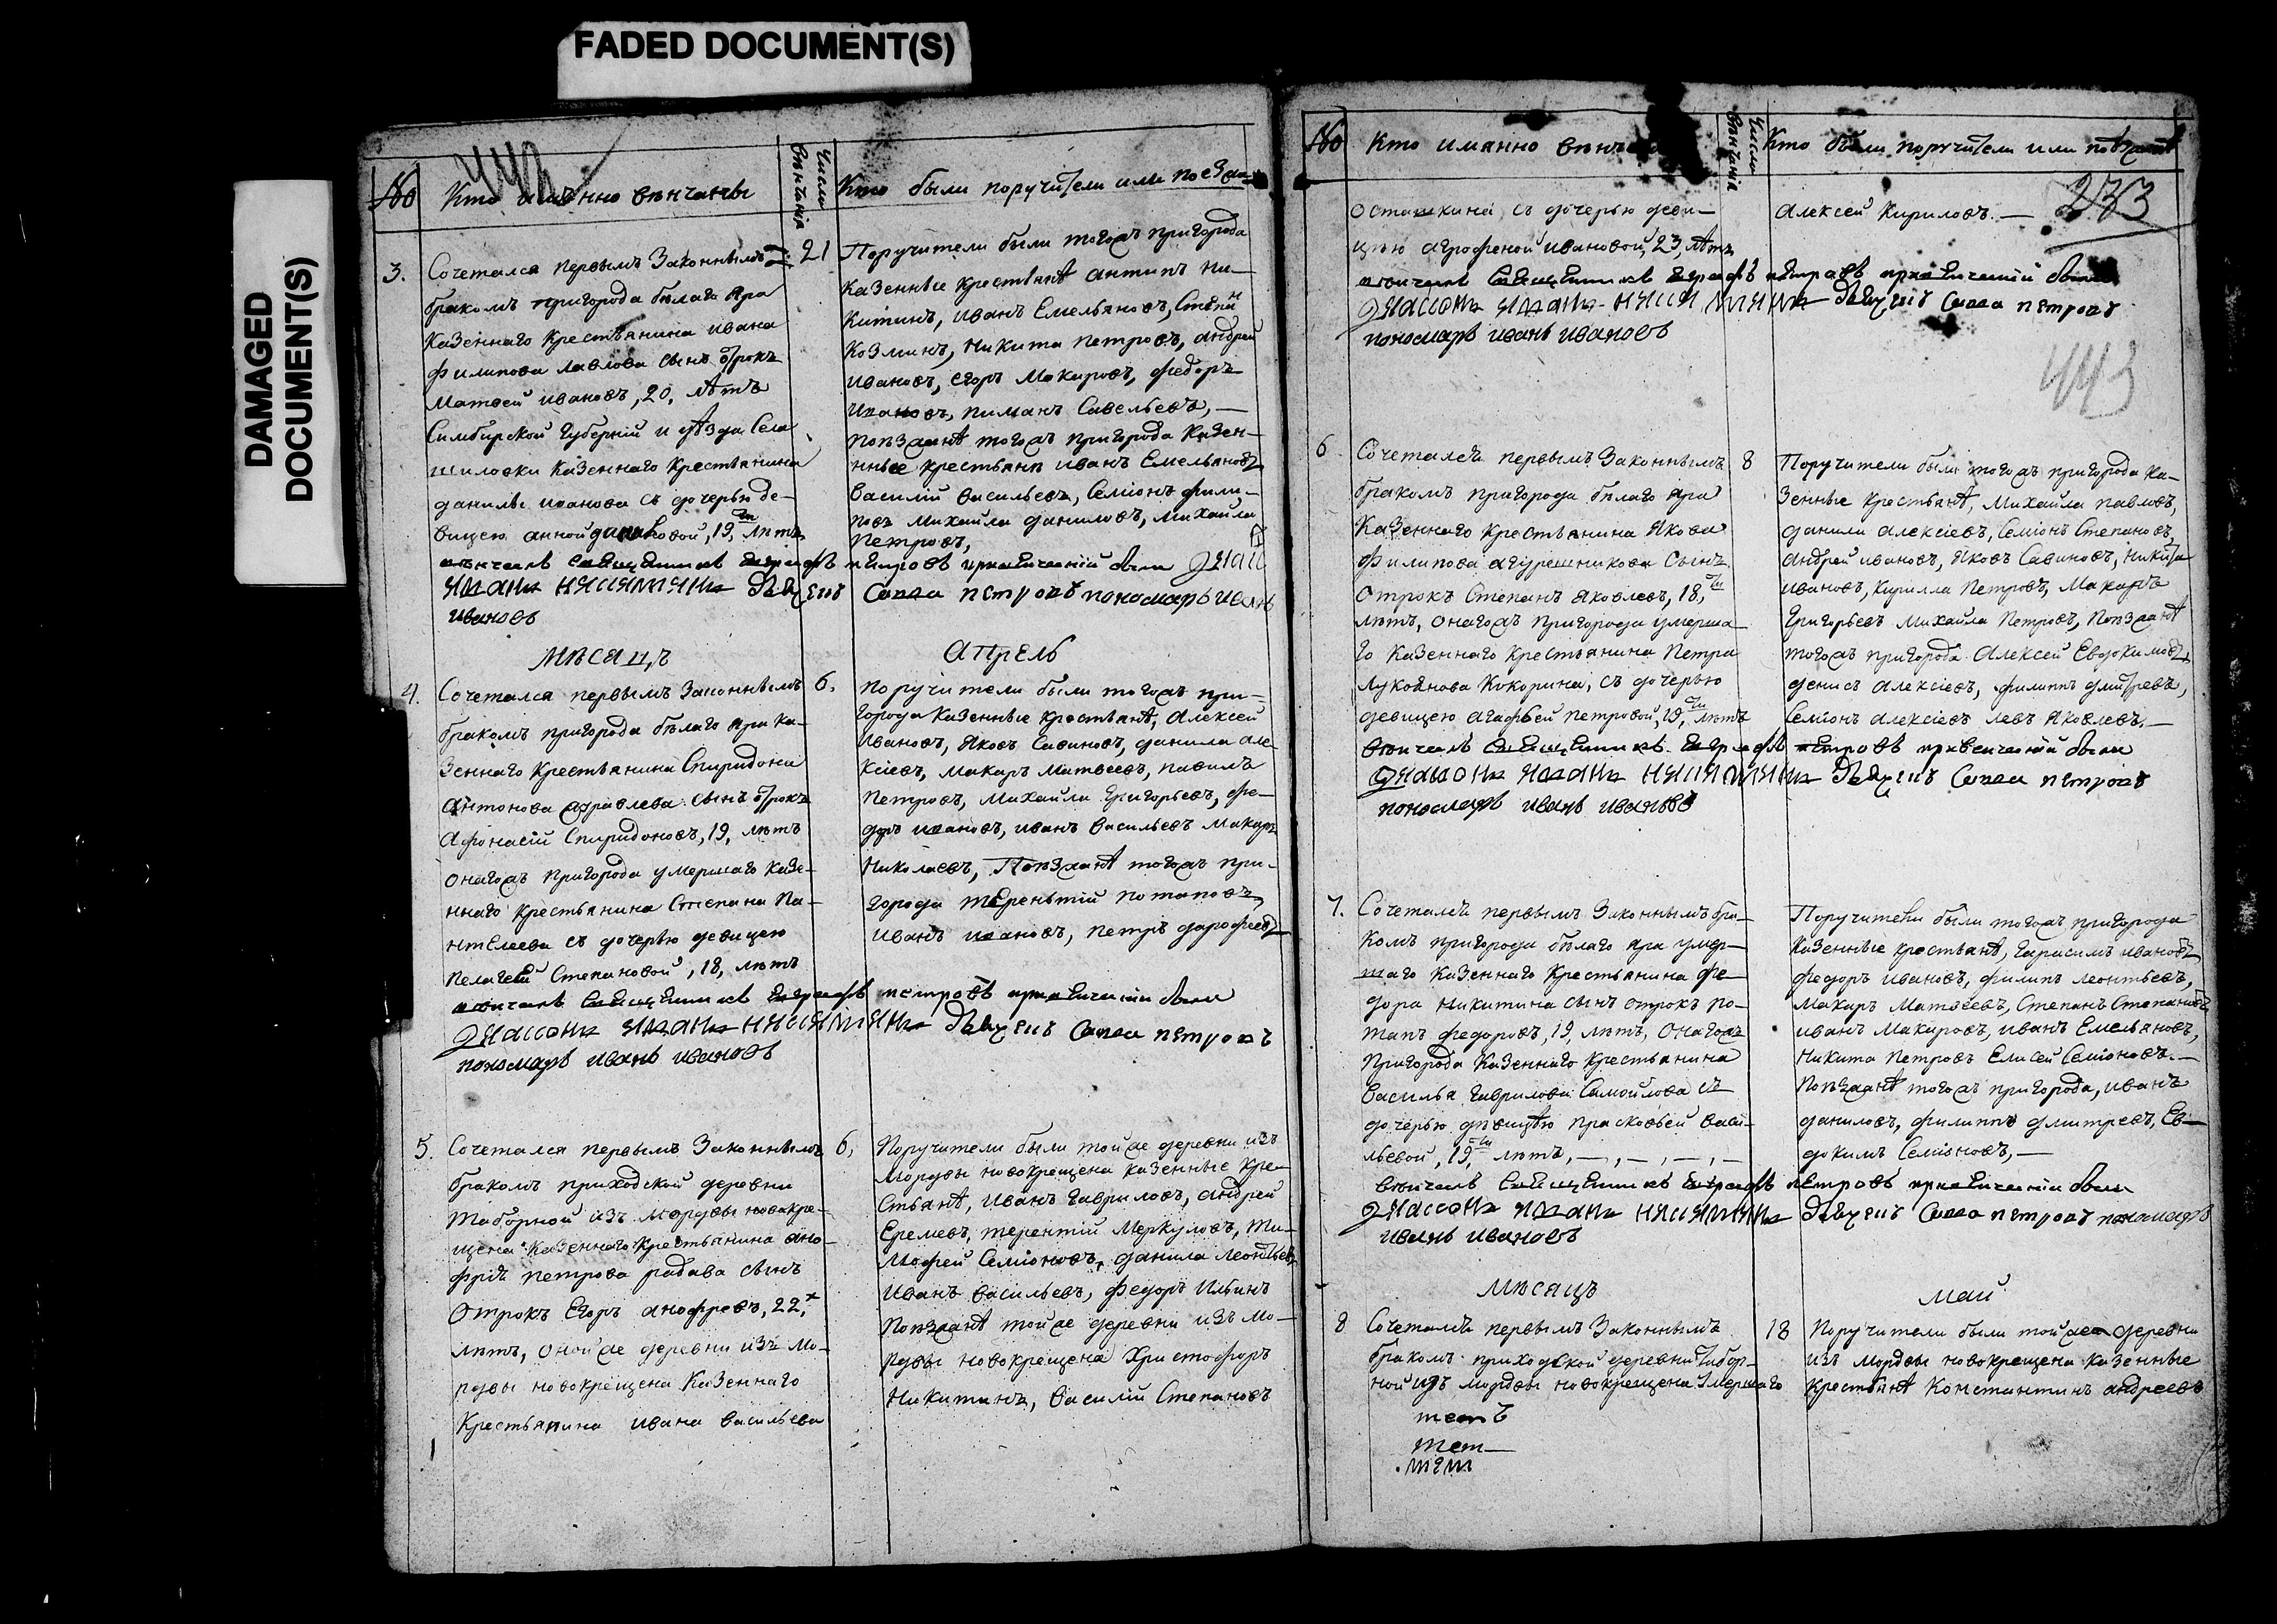 FADED DOCUMENT(S)
DAMAGED
DOCUMENT(S)
442
№
Кто имянно венчаны
Число
венчанія
Кто были поручители или поезжа
3.
Сочетался первымъ Законнымъ
бракомъ пригорода белаго Яра
Казеннаго Крестьянина ивана
Филипова павлова сынъ отрокъ
Матвей ивановъ, 20, летъ
Симбирской Губерніи и уезда Села
шиловки Казеннаго Крестьянина
данилы иванова съ дочерью де-
вицею анной даниловой, 19, летъ
21
Поручители были тогожъ пригорода
Казенные крестьяне антипъ ни-
китинъ, иванъ Емельяновъ, Степанъ
Козминъ, никита петровъ, андрей
ивановъ, егоръ Макаровъ, федоръ
ивановъ, пиманъ Савельевъ, —
поезжане тогожъ пригорода Казен-
ные крестьяне иванъ Емельяновъ
Василій Васильевъ, Семіонъ фили-
повъ Михайла даниловъ, Михайла
Петровъ,
венчалъ Священникъ Евграфъ петровъ при венчаніи были
Савва петровъ пономарь иванъ
ивановъ
Месяцъ
Апрель
4.
Сочетался первымъ Законнымъ
бракомъ пригорода белаго Яра ка-
зеннаго Крестьянина Спиридона
Антонова журавлева сынъ отрокъ
Афонасій Спиридоновъ, 19, летъ
онагожъ пригорода умершаго казе-
ннаго крестьянина Степана Па-
нтелеева съ дочерью девицею
Пелагеей Степановой, 18, летъ
6,
поручители были тогожъ при-
города казенные крестьяне, Алексей
Ивановъ, Яковъ Савиновъ, данила але-
ксіевъ, Макаръ Матвеевъ, павилъ
Петровъ, Михайла Григорьевъ, фе-
доръ ивановъ, иванъ Васильевъ Макаръ
Николаевъ, Поезжане тогожъ при-
города терентій потаповъ
иванъ ивановъ, петръ дорофеевъ
венчалъ Священникъ Евграфъ петровъ при венчаніи были
Савва петровъ
пономарь иванъ ивановъ
5.
Сочетался первымъ Законнымъ
бракомъ приходской деревни
Таборной изъ мордвы новокре-
щена казеннаго крестьянина ано-
фрія петрова радава сынъ
Отрокъ Егоръ анофревъ, 22,
летъ, оной же деревни изъ мо-
рдвы новокрещена Казеннаго
Крестьянина ивана Васильева
6,
Поручители были той же деревни изъ
Мордвы новокрещена казенные кре-
стьяне, иванъ Гавриловъ, андрей
Еремевъ, терентій Меркуловъ, Ти-
мофей Семіоновъ, данила леонтьевъ
Иванъ Васильевъ, федоръ Ильинъ
Поезжане той же деревни изъ мо-
рдвы новокрещена Христофоръ
Никитинъ, Василій Степановъ
№
Кто имянно
Число
венчанія
Кто были поручители или поезжане
233
443
Осташкина, съ дочерью деви-
цею аграфеной ивановой, 23, летъ
Алексей Кириловъ. —
венчалъ Священникъ Евграфъ петровъ при венчаніи были
Савва петровъ
пономарь иванъ ивановъ
6
Сочетался первымъ Законнымъ
бракомъ пригорода белаго яра
Казеннаго Крестьянина Якова
Филипова Сынъ
Отрокъ Степанъ Яковлевъ, 18,
летъ, онагожъ пригорода умерша-
го казеннаго крестьянина Петра
Лукоянова Кокорина, съ дочерью
девицею агафьей петровой, 19, летъ
8
Поручители были тогожъ пригорода ка-
зенные крестьяне, Михайла павловъ,
данила алексіевъ, Семіонъ Степановъ,
андрей ивановъ, Яковъ Савиновъ, никита
ивановъ, Кирилла Петровъ, Макаръ
Григорьевъ Михайла петровъ, Поезжане
тогожъ пригорода Алексей Евдокимовъ,
денисъ алексіевъ, филиппъ дмитревъ,
Семіонъ алексіевъ левъ Яковлевъ. —
венчалъ Священникъ Евграфъ петровъ при венчаніи были
Савва петровъ
пономарь иванъ ивановъ
7.
Сочетался первымъ Законнымъ бра-
комъ пригорода белаго яра умер-
шаго казеннаго крестьянина фе-
дора никитина сынъ отрокъ по-
тапъ федоровъ, 19, летъ, онагожъ
пригорода казеннаго крестьянина
Василья Гаврилова Самойлова съ
дочерью девицею прасковьей Васи-
льевой, 19, летъ, —, —, —, —
Поручители были тогожъ пригорода
казенные крестьяне, Герасимъ ивановъ
федоръ ивановъ, филипъ леонтьевъ,
Макаръ Матвеевъ, Степанъ Степановъ
иванъ Макаровъ, иванъ Емельяновъ,
никита петровъ Елисей Семіоновъ. —
Поезжане тогожъ пригорода, иванъ
даниловъ, филиппъ дмитревъ, Ев-
докимъ Семіоновъ, —
венчалъ Священникъ Евграфъ петровъ при венчаніи были
Савва петровъ пономарь
иванъ ивановъ
Месяцъ
Май
8
Сочетался первымъ Законнымъ
бракомъ приходской деревни табор-
ной изъ мордвы новокрещена умершаго
18
Поручители были той же деревни
изъ мордвы новокрещена казенные
крестьяне Константинъ андреевъ